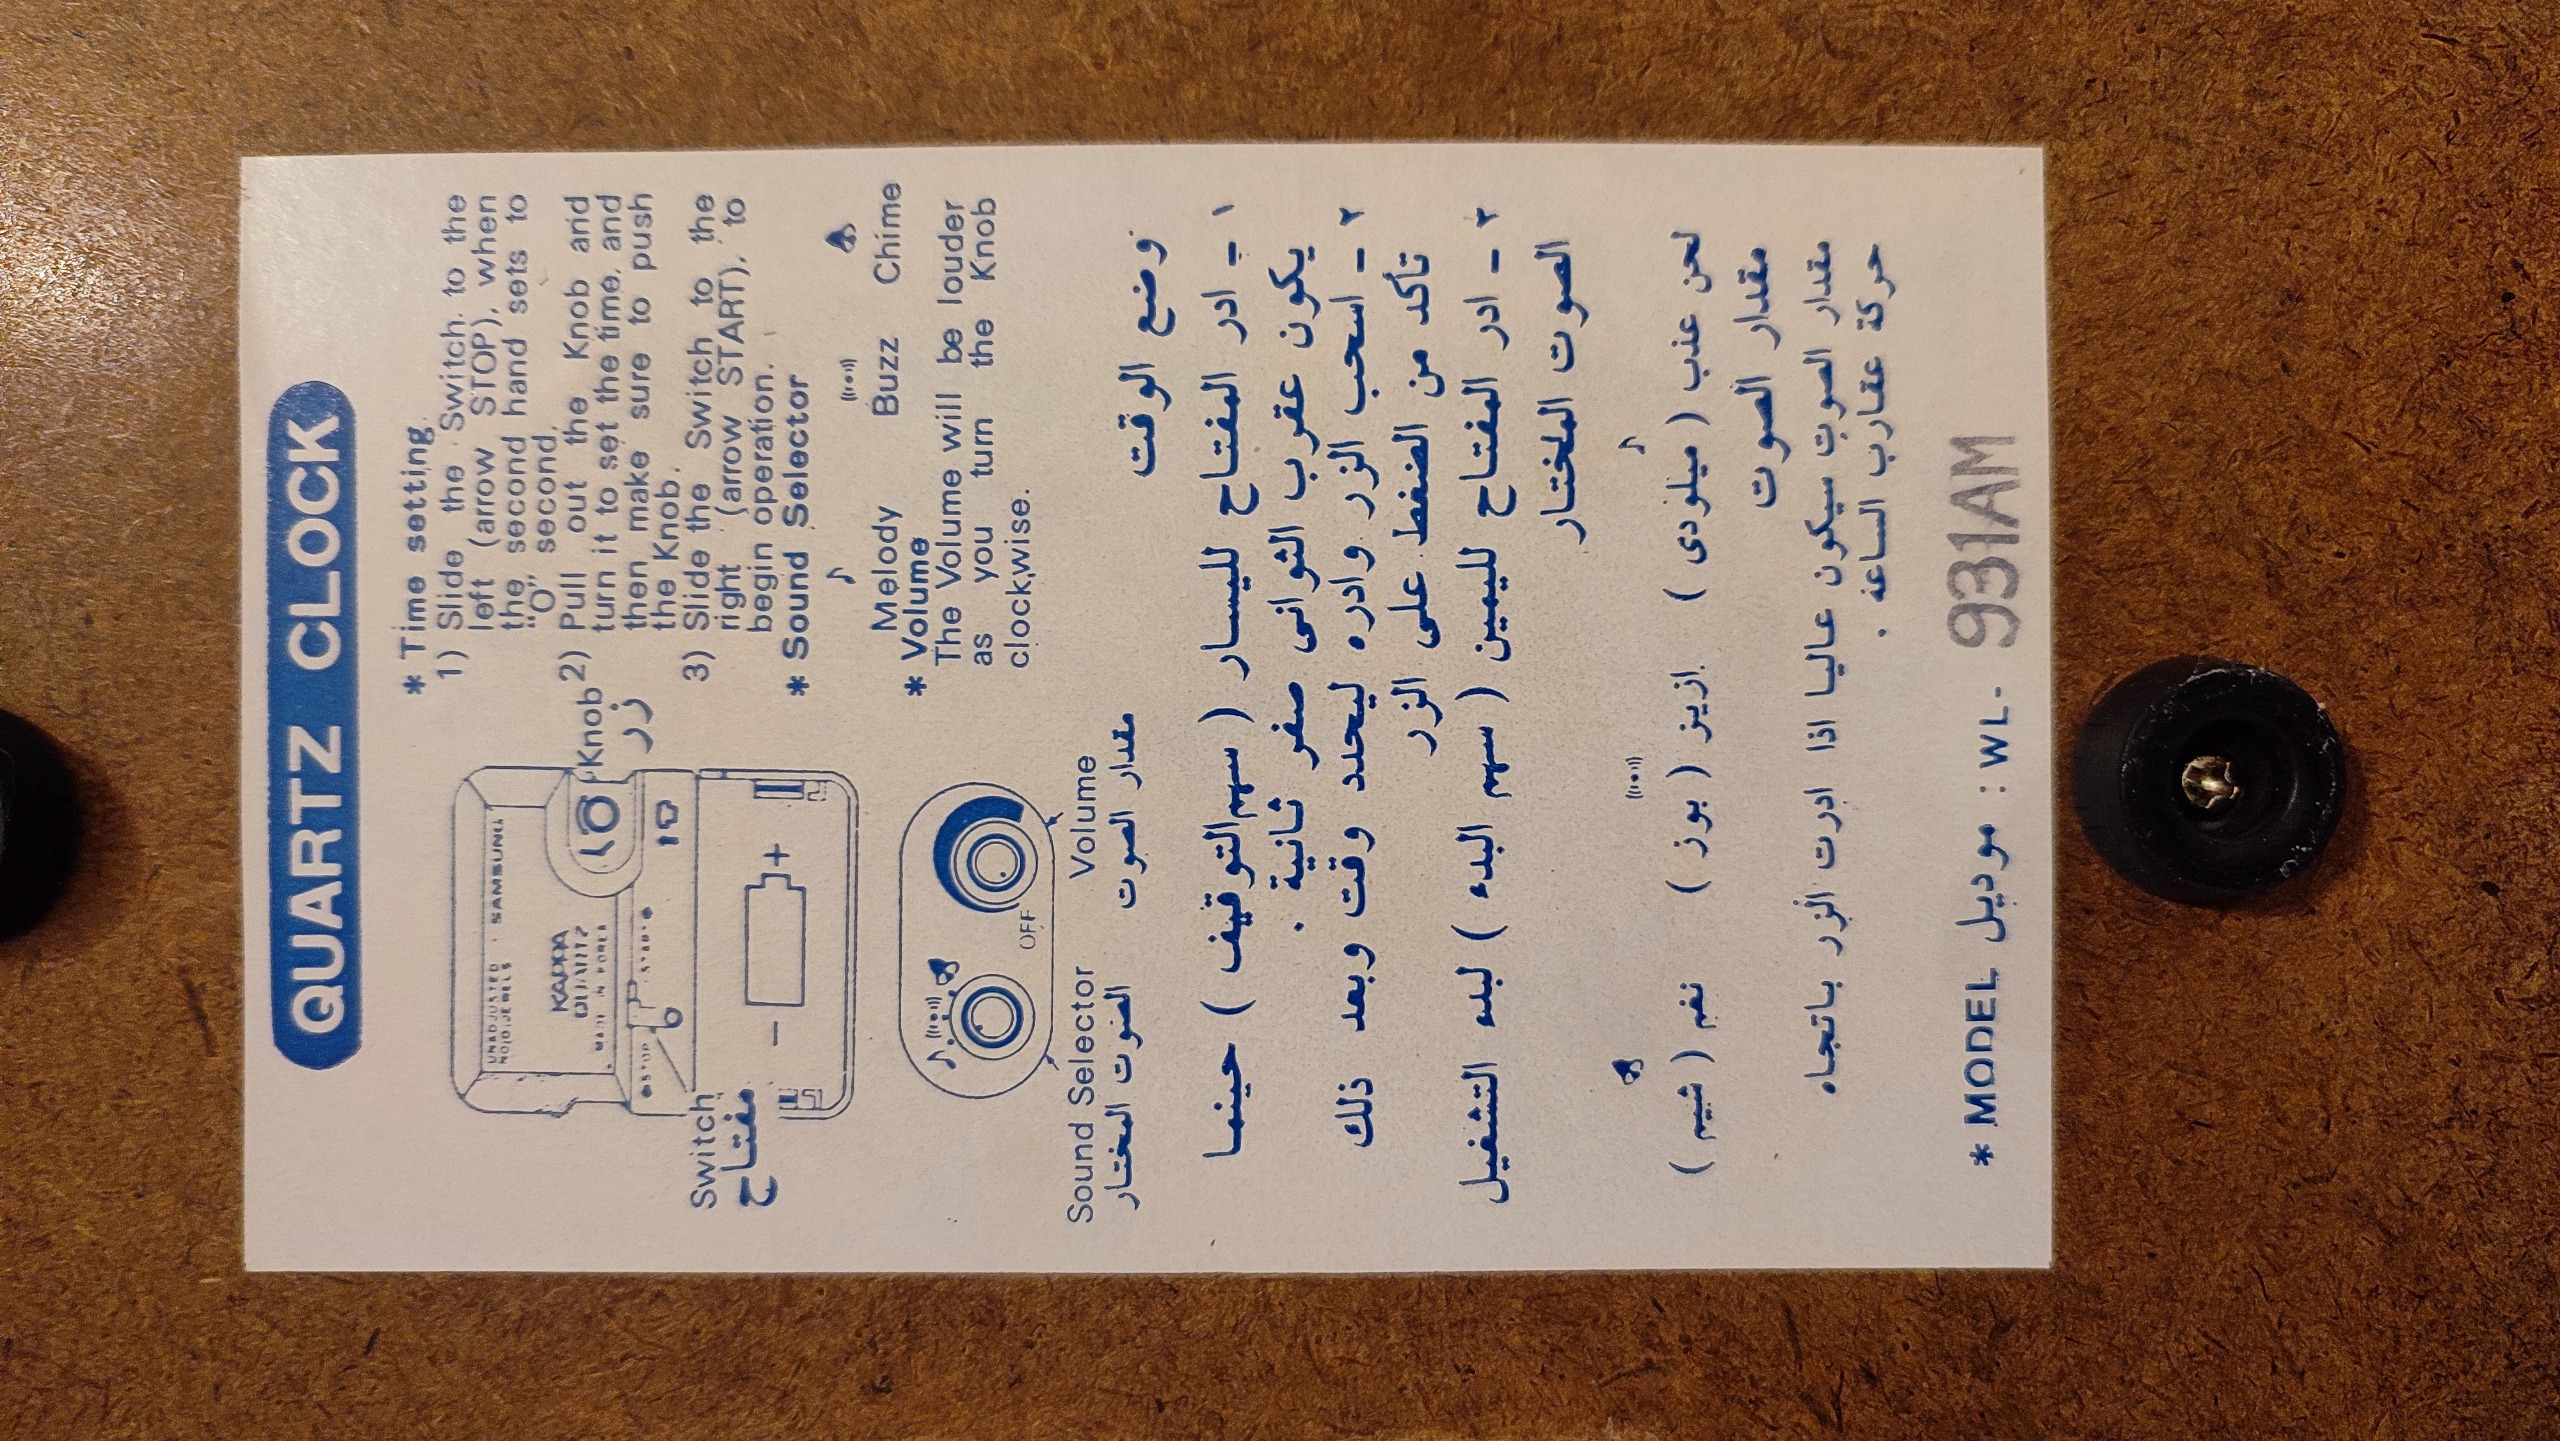 QUARTZ CLOCK
UNADJUSTED SAMSUNG
NO(0)JEWELS
QUARTZ
MADE IN KOREA
STOP START
Knob
زر
Switch
مفتاح
− +
OFF
Sound Selector Volume
الصوت المختار مقدار الصوت
* Time setting
1) Slide the Switch. to the
left (arrow STOP), when
the second hand sets to
"O" second.
2) Pull out the Knob and
turn it to set the time, and
then make sure to push
the Knob.
3) Slide the Switch to the
right (arrow START), to
begin operation.
* Sound Selector
♪ ((•))
Melody Buzz Chime
* Volume
The Volume will be louder
as you turn the Knob
clockwise.
وضع الوقت
١ - ادر المفتاح لليسار ( سهم التوقيف ) حينما
يكون عقرب الثوانى صفر ثانية .
٢ - اسحب الزر وادره ليحدد وقت وبعد ذلك
تأكد من الضغط على الزر
٢ - ادر المفتاح لليمين ( سهم البدء ) لبدء التشغيل
الصوت المختار
♪ ((•))
لحن عذب ( ميلودى ) ازيز ( بوز ) نغم ( شيم )
مقدار الصوت
مقدار الصوت سيكون عاليا اذا ادرت الزر باتجاه
حركة عقارب الساعة .
* MODEL موديل : WL- 931AM